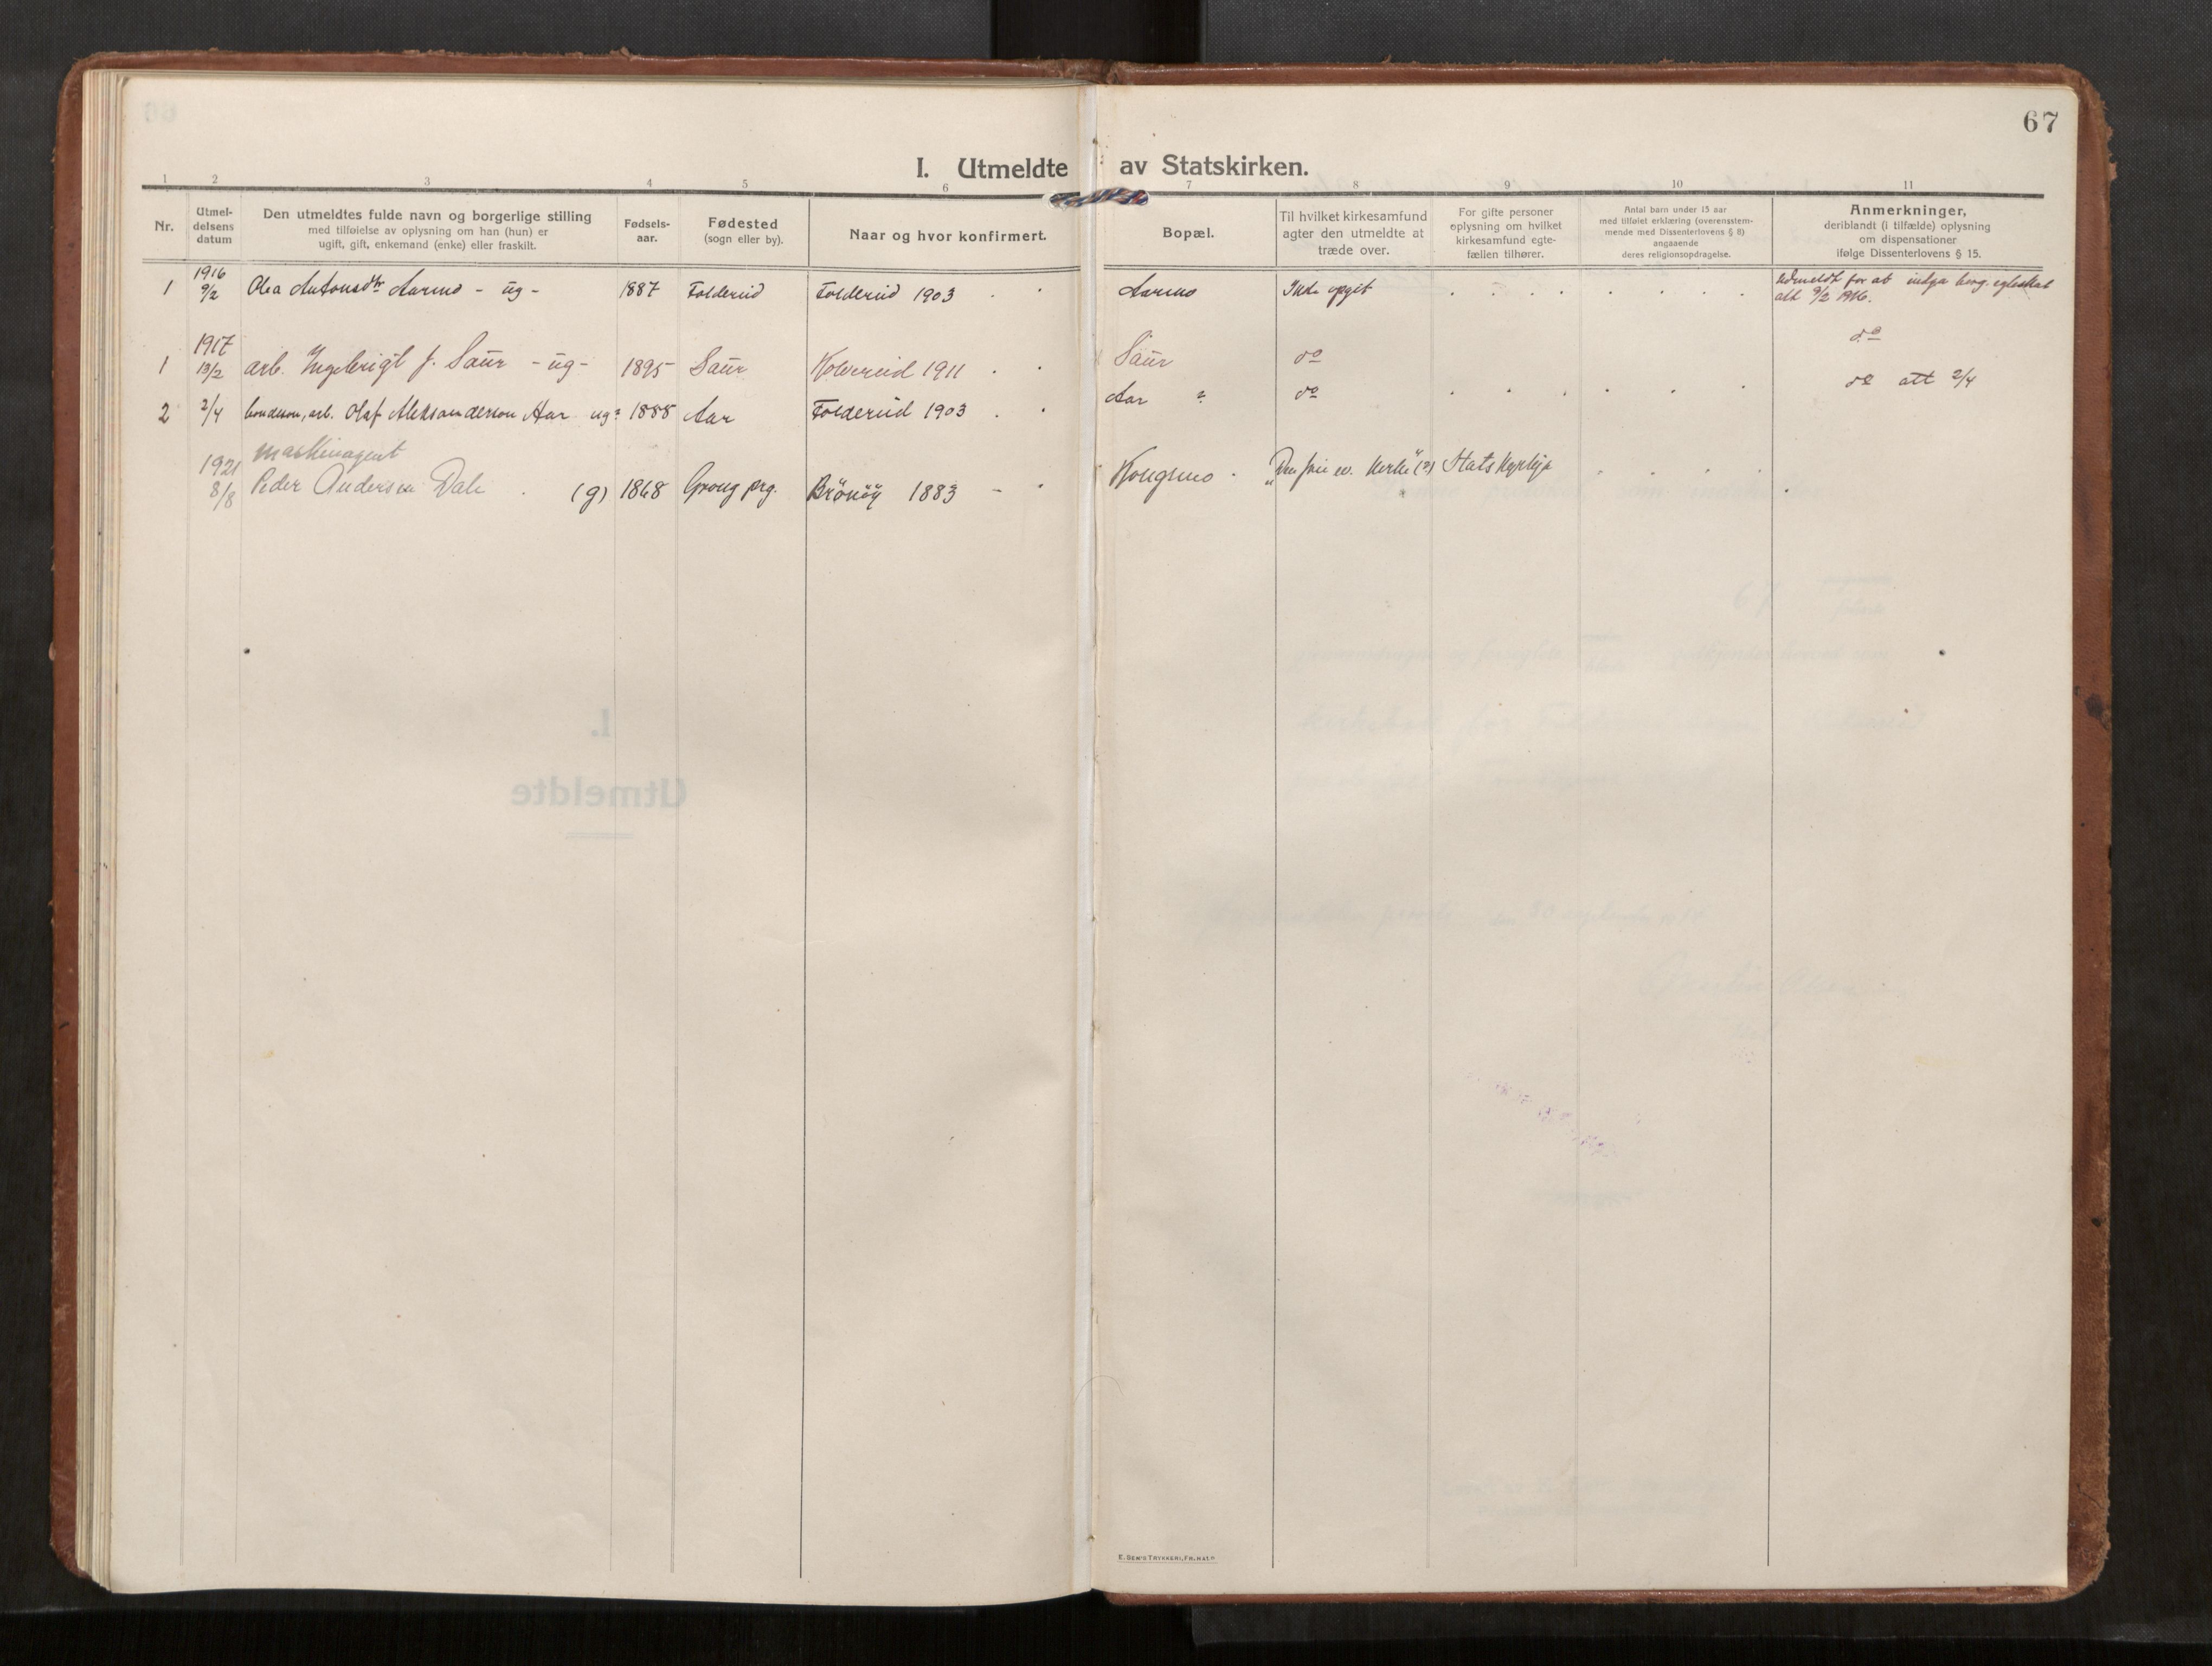 67
I. Utmeldte av Statskirken.
1 2 3 4 5 6 7 8 9 10 11
Nr.
Utmel-
delsens
datum
Den utmeldtes fulde navn og borgerlige stilling
med tilføielse av oplysning om han (hun) er
ugift, gift, enkemand (enke) eller fraskilt.
Fødsels-
aar.
Fødested
(sogn eller by).
Naar og hvor konfirmert.
Bopæl.
Til hvilket kirkesamfund
agter den utmeldte at
træde over.
For gifte personer
oplysning om hvilket
kirkesamfund egte-
fællen tilhører.
Antal barn under 15 aar
med tilføiet erklæring (overensstem-
mende med Dissenterlovens § 8)
angaaende
deres religionsopdragelse.
Anmerkninger,
deriblandt (i tilfælde) oplysning
om dispensationer
ifølge Dissenterlovens § 15.
1916
1 9/2 Olea Antonsdtr Aarmo - ug - 1887 Foldereid Foldereid 1903 Aarmo Ikke opgit Udmeldt for at indga borg. egteskab
att 9/2 1916.
1917
1 13/2 arb. Ingebrigt J. Saur - ug - 1895 Saur Kolvereid 1911 Saur do do
2 2/4 bondesøn, arb. Olaf Aleksandersen Aar ug: 1888 Aar Foldereid 1903 Aar do do att 2/4
1921 maskinagent
8/8 Peder Andersen Dale (g) 1868 Grong prg. Brönöy 1883 Kongsmo "Den frie ev. kirke" (?) Statskyrkja
I.
Utmeldte
E. SEM'S TRYKKERI, FR.HALD